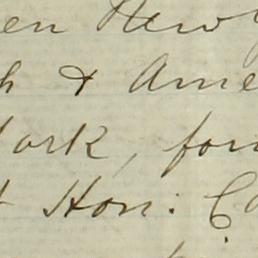 en New
h & Ame
ork, for
t Hon: Co